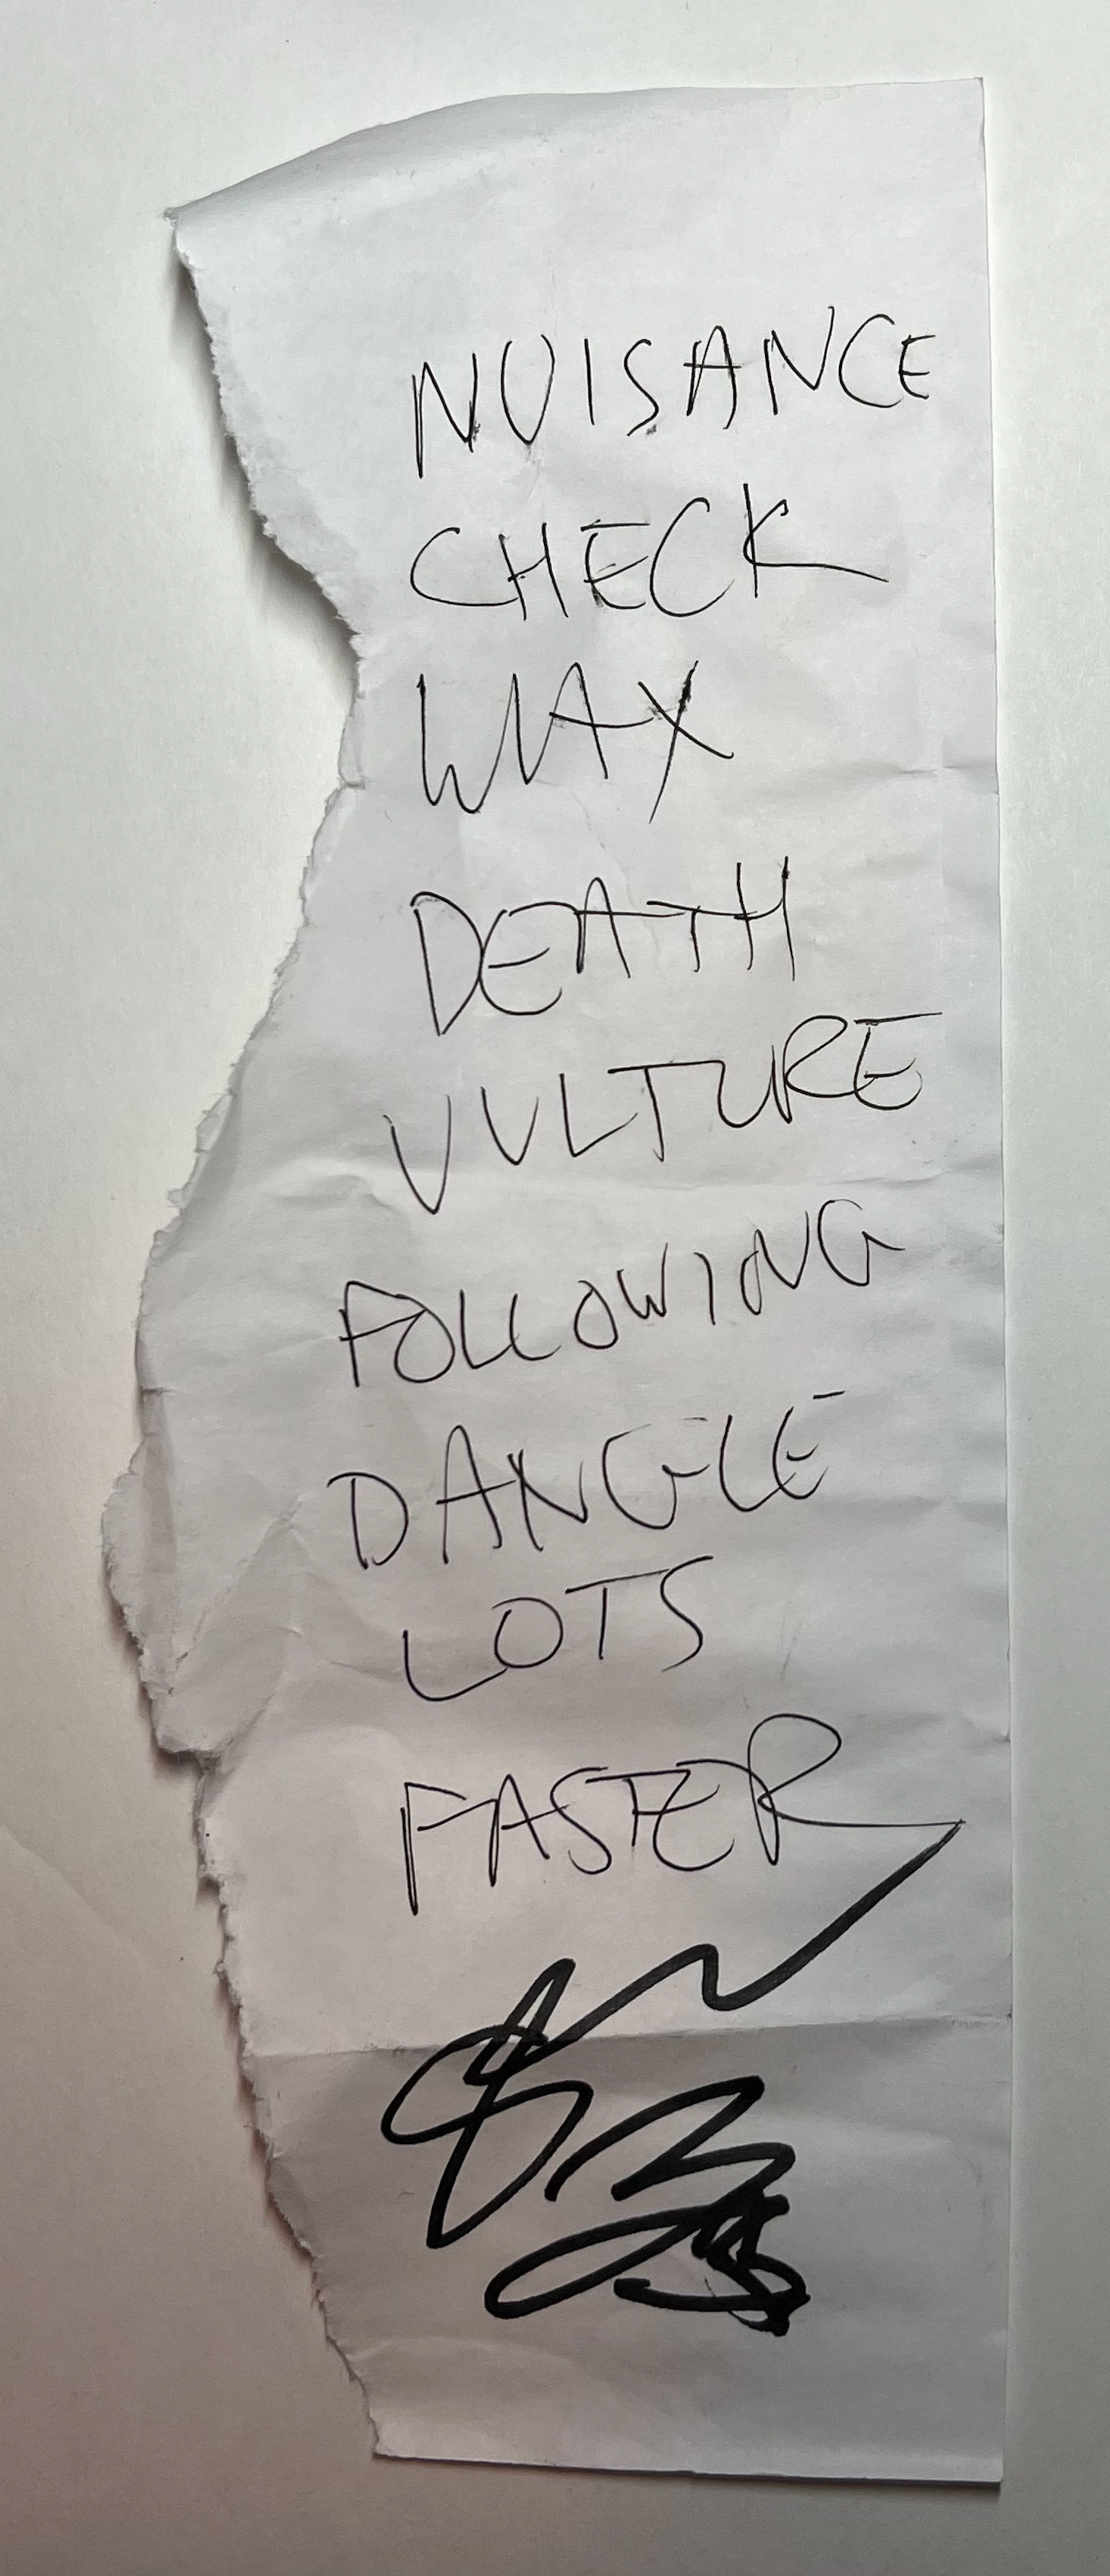 NUISANCE
CHECK
WAX
DEATH
VULTURE
FOLLOWING
DANGLE
LOTS
FASTER